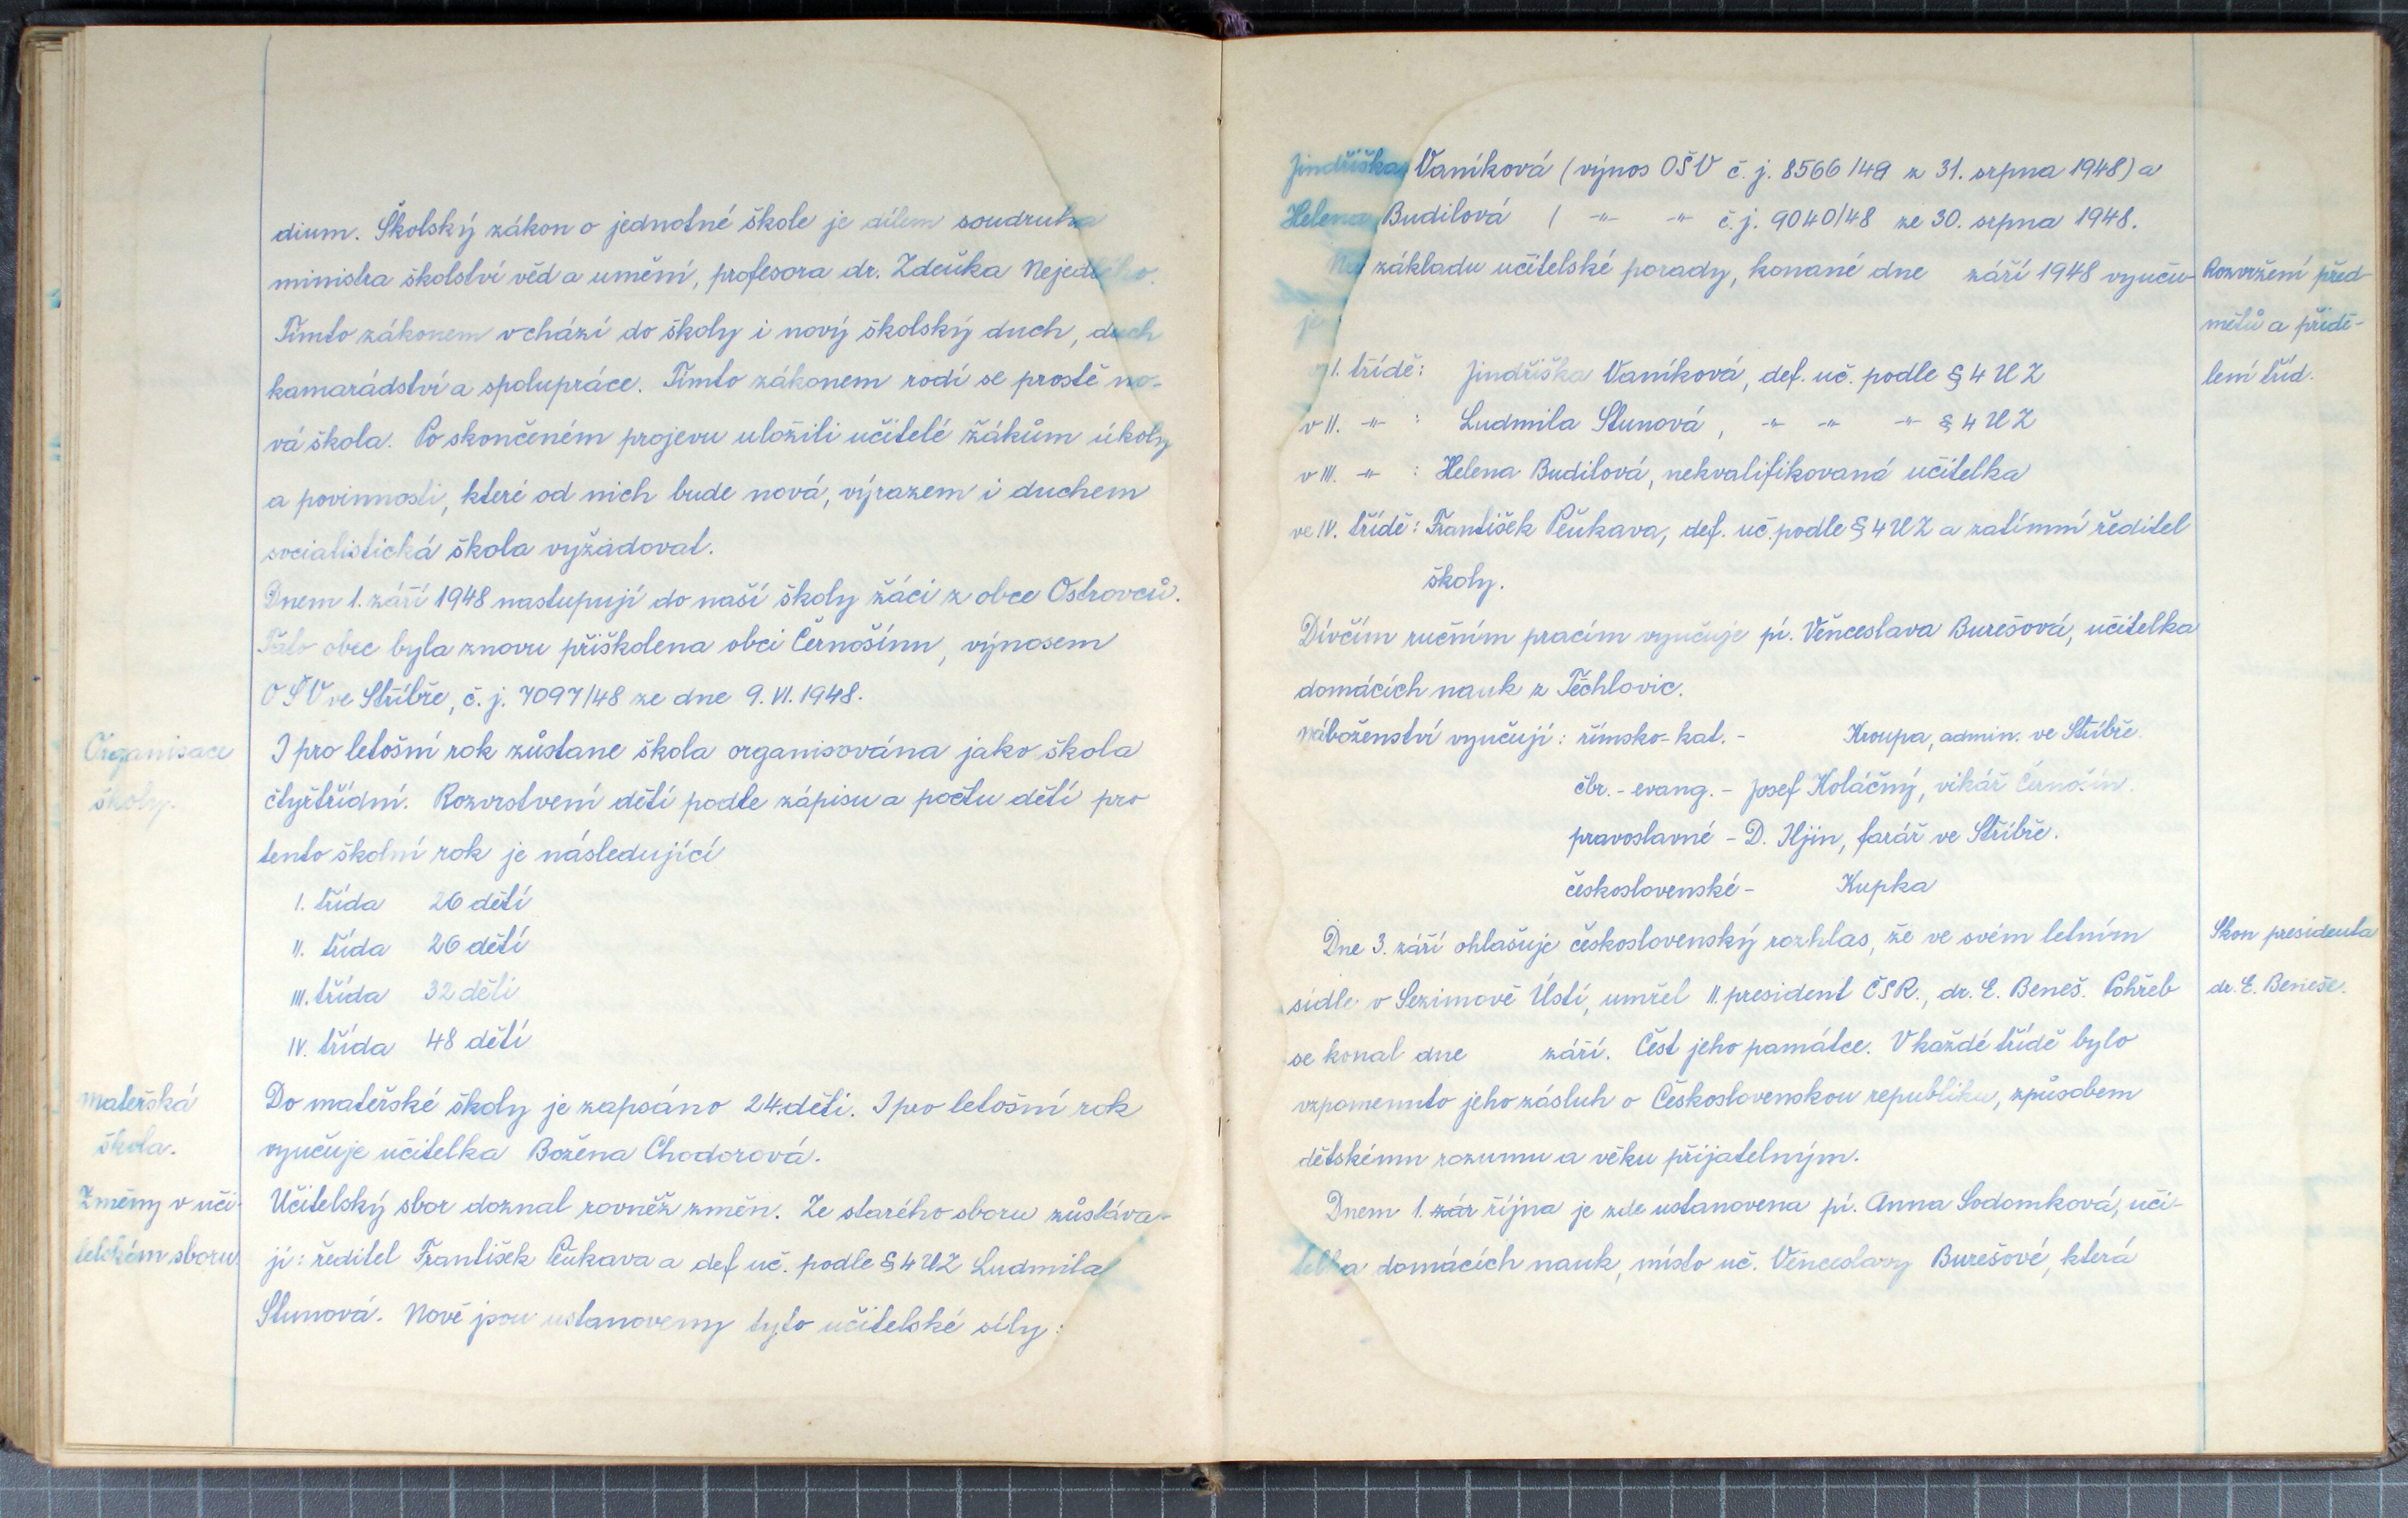 dium. Školský zákon o jednotné škole je dílem soudruha
ministra školství věd a umění, profesora dr. Zdeňka Nejedlého.
Tímto zákonem vchází do školy i nový školský duch, duch
kamarádství a spolupráce. Tímto zákonem rodí se prostě no-
vá škola. Po skončeném projevu uložili učitelé žákům úkoly
a povinnosti, které od nich bude nová, výrazem i duchem
socialistická škola vyžadovat.
Dnem 1. září 1948 nastupují do naší školy žáci z obce Ostrovců.
Tato obec byla znovu přiškolena obci Černošínu, výnosem
OŠV ve Stříbře, č. j. 7097/48 ze dne 9. VI. 1948.
Organisace
školy.
I pro letošní rok zůstane škola organisována jako škola
čtyřtřídní. Rozvrstvení dětí podle zápisu a počtu dětí pro
tento školní rok je následující
I. třída 26 dětí
II. třída 26 dětí
III. třída 32 dětí
IV. třída 48 dětí
Mateřská
škola.
Do mateřské školy je zapsáno 24. dětí. I pro letošní rok
vyučuje učitelka Božena Chodorová.
Změny v uči-
telském sboru.
Učitelský sbor doznal rovněž změn. Ze starého sboru zůstáva-
jí: ředitel František Peukava a def uč. podle § 4 UZ Ludmila
Stunová. Nově jsou ustanoveny tyto učitelské síly:
Jindřiška Vaníková (výnos OŠV č. j. 8566/48 z 31. srpna 1948) a
Helena Budilová ( -"- -"- č. j. 9040/48 ze 30. srpna 1948.
Na základu učitelské porady, konané dne září 1948 vyuču-
je
Rozvržení před-
mětů a přidě-
lení tříd.
v I. třídě: Jindřiška Vaníková, def. uč. podle § 4 UZ
v II. -"- : Ludmila Stunová, -"- -"- -"- § 4 UZ
v III. -"- : Helena Budilová, nekvalifikovaná učitelka
ve IV. třídě: František Peukava, def. uč. podle § 4 UZ a zatímní ředitel
školy.
Dívčím ručním pracím vyučuje pí. Věnceslava Burešová, učitelka
domácích nauk z Těchlovic.
Náboženství vyučují: římsko-kat. - Kroupa, admin. ve Stříbře.
čbr. - evang. - Josef Koláčný, vikář Černošín.
pravoslavné - D. Iljin, farář ve Stříbře.
československé - Kupka
Dne 3. září ohlašuje československý rozhlas, že ve svém letním
sídle v Sezimově Ústí, umřel II. president ČSR., dr. E. Beneš. Pohřeb
se konal dne září. Čest jeho památce. V každé třídě bylo
vzpomenuto jeho zásluh o Československou republiku, způsobem
dětskému rozumu a věku přijatelným.
Skon presidenta
dr. E. Beneše.
Dnem 1. zář října je zde ustanovena pí. Anna Sodomková, uči-
telka domácích nauk, místo uč. Věnceslavy Burešové, která